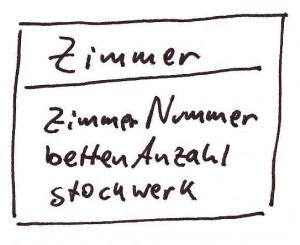 Zimmer
zimmerNummer
bettenAnzahl
stockwerk